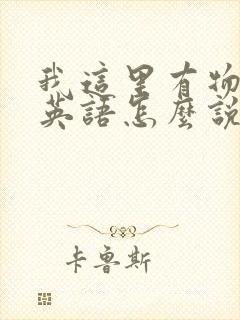 我這里有物
英語怎麼說
卡魯斯